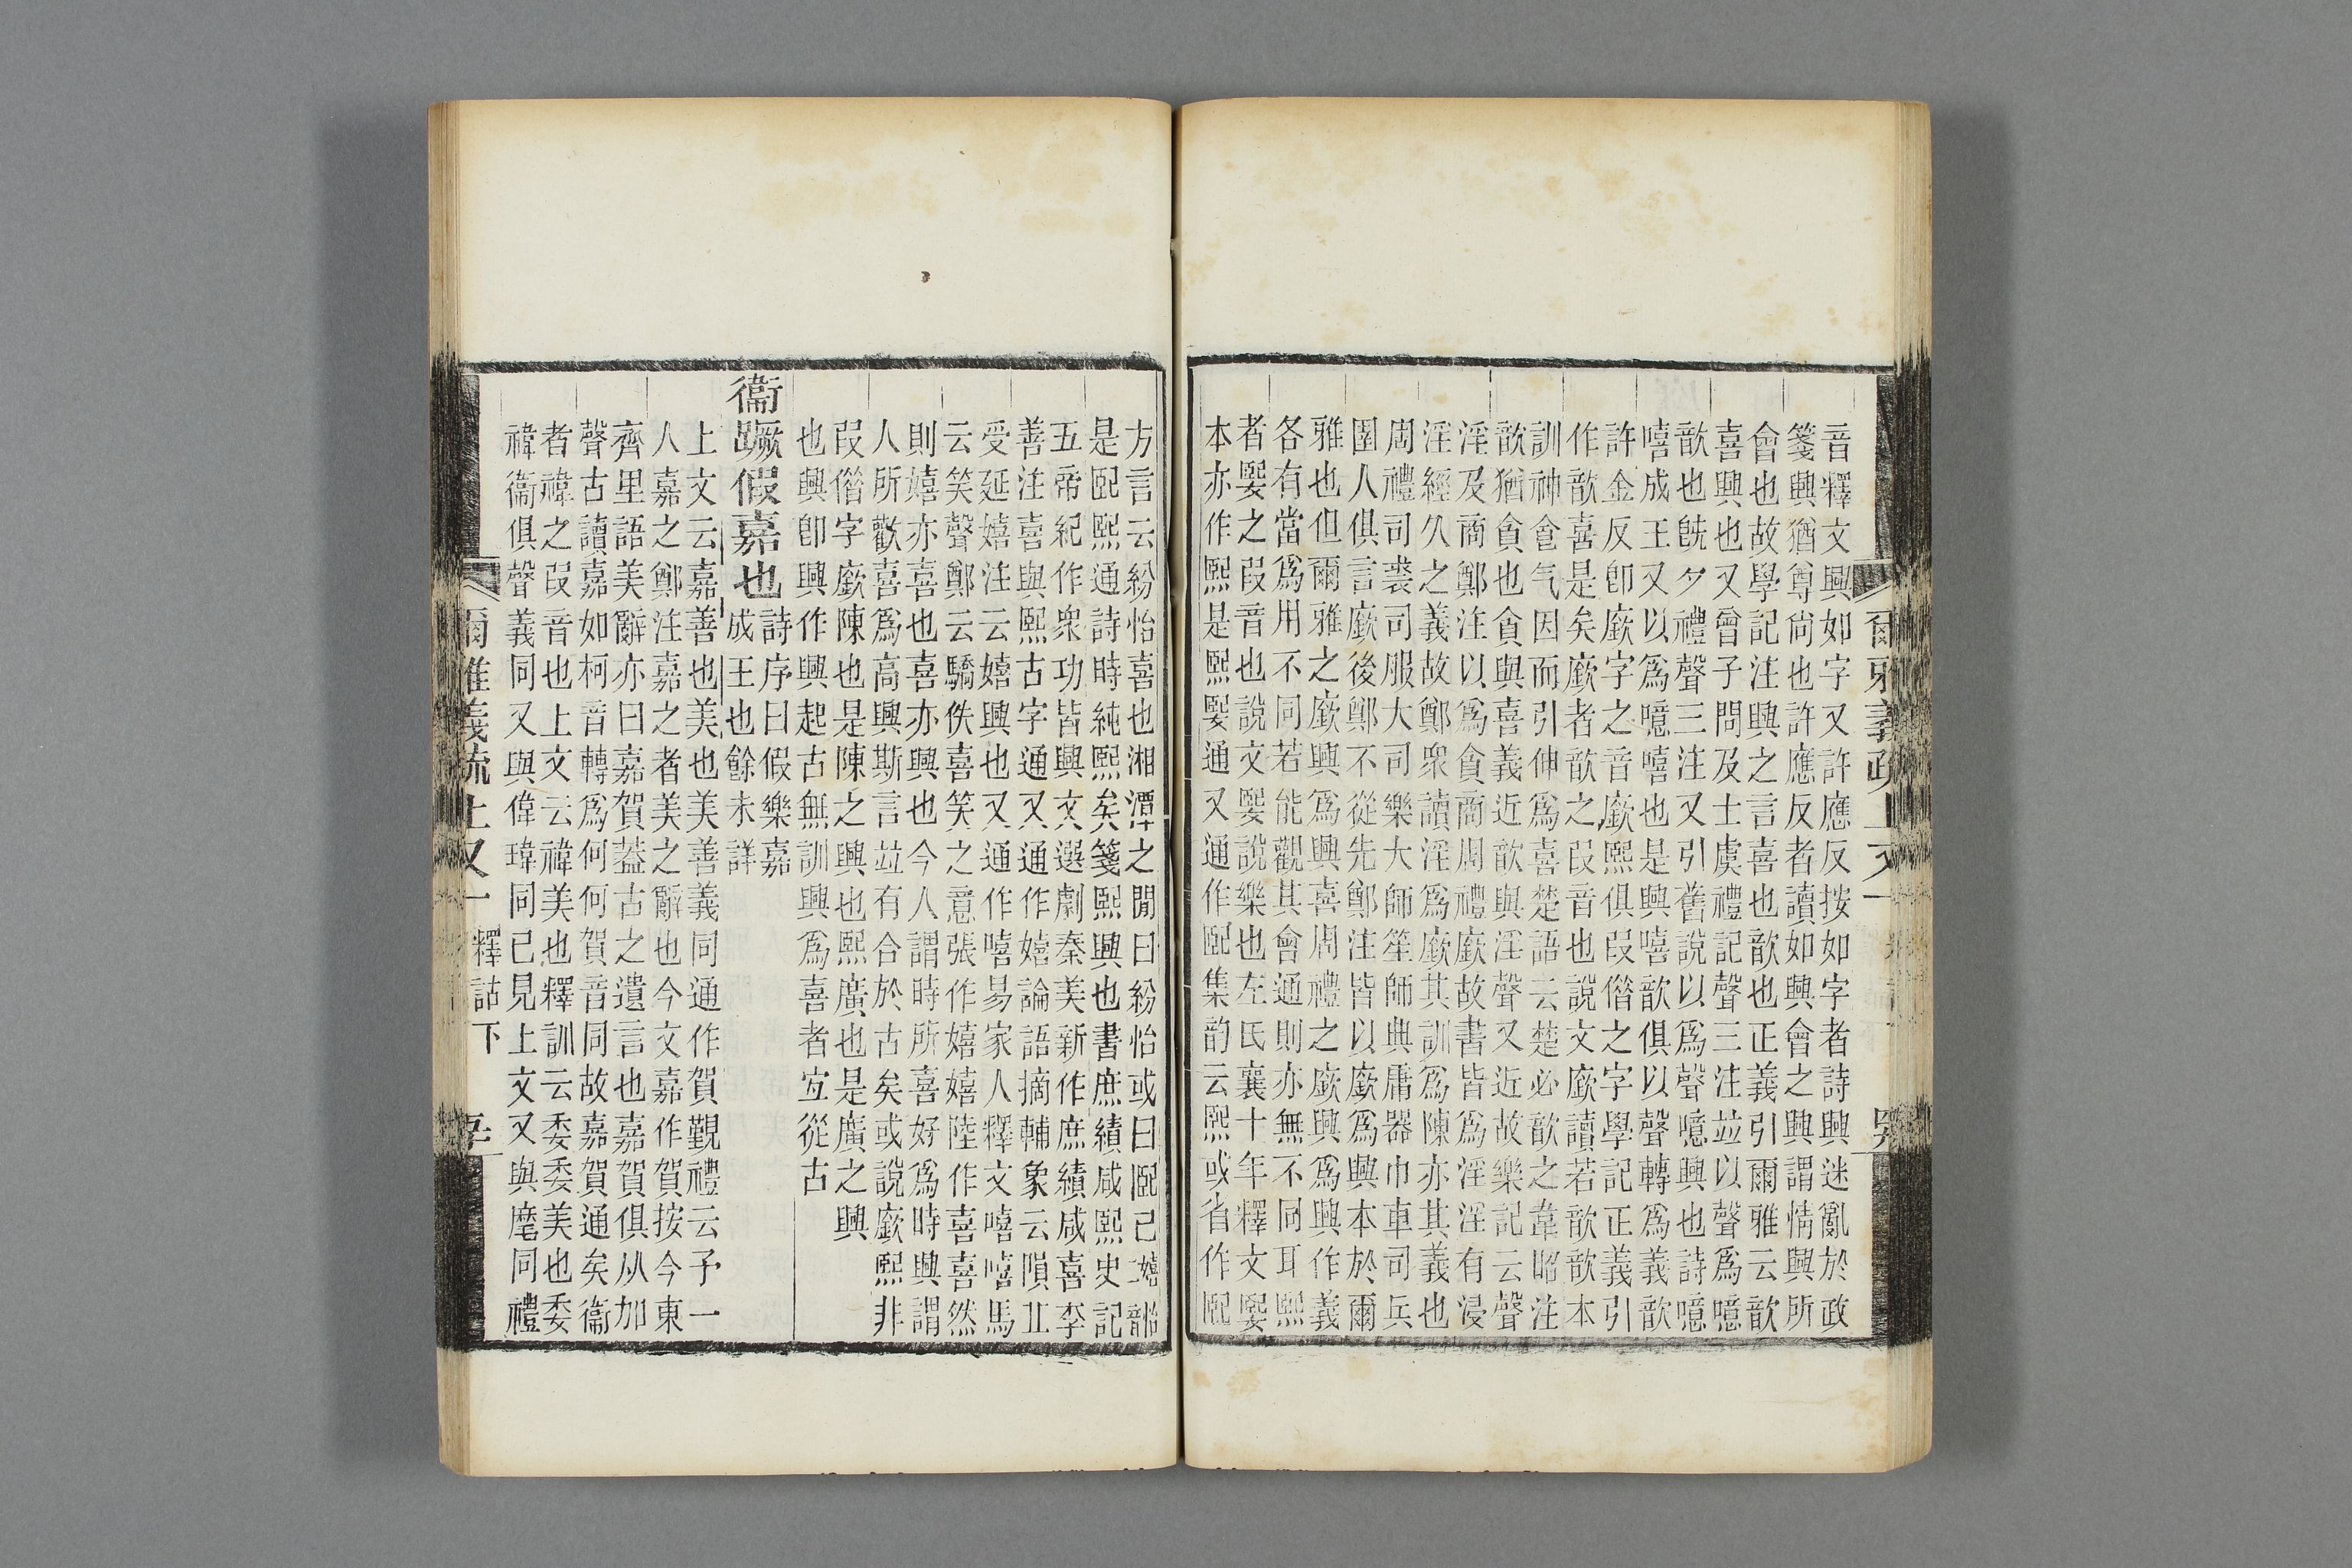 音釋文興如字又許應反按如字者詩興迷亂於政
箋興猶尊尚也許應反者讀如興會之興謂情興所
會也故學記注興之言喜也歆也正義引爾雅云歆
喜興也又曾子問及士虞禮記聲三注並以聲爲噫
歆也旣夕禮聲三注又引舊說以爲聲噫興也詩噫
嘻成王又以爲噫嘻也是興嘻歆俱以聲轉爲義歆
許金反卽廞字之音廞熙俱叚偕之字學記正義引
作歆喜是矣廞者歆之叚音也說文廞讀若歆歆本
訓神食气因而引伸爲喜楚語云楚必歆之韋昭注
歆猶貪也貪與喜義近歆與淫聲又近故樂記云聲
淫及商鄭注以爲貪商周禮廞故書皆爲淫淫有浸
淫經久之義故鄭衆讀淫爲廞其訓爲陳亦其義也
周禮司裘司服大司樂大師笙師典庸器巾車司兵
圉人俱言廞後鄭不從先鄭注皆以廞爲興本於爾
雅也但爾雅之廞興爲興喜周禮之廞興爲興作義
各有當爲用不同若能觀其會通則亦無不同耳熙
者媐之叚音也說文媐說樂也左氏襄十年釋文媐
本亦作熙是熙媐通又通作巸集韵云熙或省作巸
爾雅義疏上又一
方言云紛怡喜也湘潭之閒曰紛怡或曰巸已嬉怡二韻
是巸熙通詩時純熙矣箋熙興也書庶績咸熙史記
五帝紀作衆功皆興文選劇秦美新作庶績咸喜李
善注喜與熙古字通又通作嬉論語摘輔象云隕丘
受延嬉注云嬉興也又通作嘻易家人釋文嘻嘻馬
云笑聲鄭云驕佚喜笑之意張作嬉嬉陸作喜喜然
則嬉亦喜也喜亦興也今人謂時所喜好爲時興謂
人所歡喜爲高興斯言竝有合於古矣或說廞熙非
叚偕字廞陳也是陳之興也熙廣也是廣之興
也興卽興作興起古無訓興爲喜者宜從古
衞蹶假嘉也詩序曰假樂嘉成王也餘未詳
上文云嘉善也美也美善義同通作賀覲禮云予一
人嘉之鄭注嘉之者美之辭也今文嘉作賀按今東
齊里語美辭亦曰嘉賀葢古之遺言也嘉賀俱从加
聲古讀嘉如柯音轉爲何何賀音同故嘉賀通矣衞
者禕之叚音也上文云禕美也釋訓云委委美也委
禕衞俱聲義同又與偉瑋同已見上文又與麾同禮
爾雅義疏上又一 釋詁下